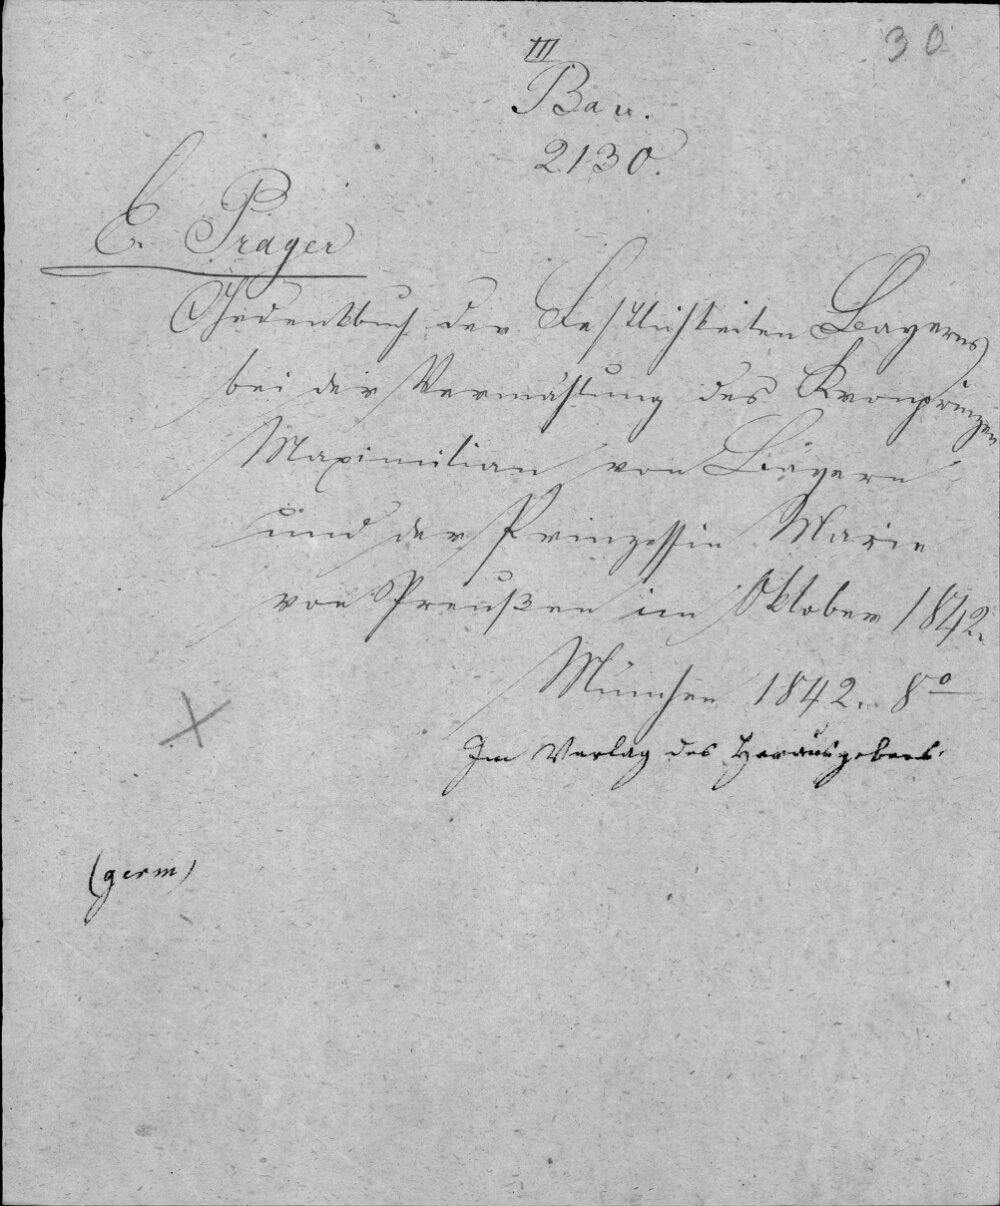 30
III
Bav.
2130.
E. Prager
Gedenkbuch der Festlichkeiten Bayerns
bei der Vermählung des Kronprinzen
Maximilian von Bayern
und der Prinzessin Marie
von Preußen im Oktober 1842.
München 1842. 8°
Im Verlag des Herausgebers.
(germ)